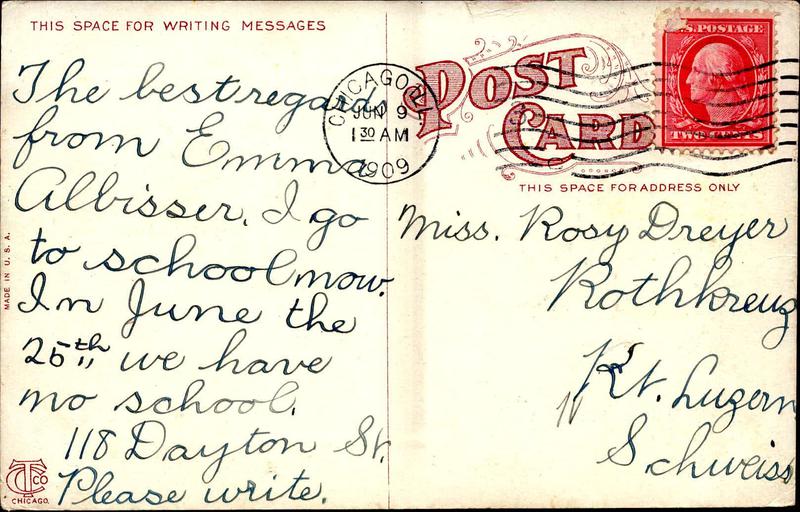 THIS SPACE FOR WRITING MESSAGES
The best regards
from Emma
Albisser. I go
to school now.
In June the
25th we have
no school.
118 Dayton St.
Please write.
MADE IN U. S. A.
CTCO
CHICAGO.
CHICAGO, ILL
JUN 9
1 30 AM
1909
POST
CARD
U.S. POSTAGE
TWO CENTS
THIS SPACE FOR ADDRESS ONLY
Miss. Rosy Dreyer
Rothkreuz
Kt. Luzern
Schweiss